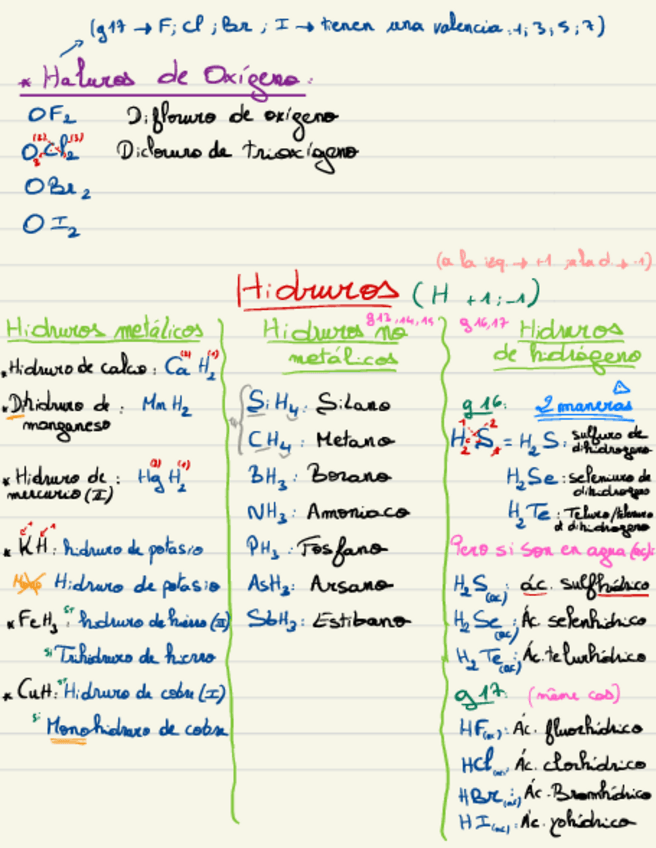 (g17 → F; Cl; Br; I → tienen una valencia: 1; 3; 5; 7)
* Haluros de Oxígeno:
OF₂ Difloruro de oxígeno
OCl₂ Dicloruro de trioxígeno
OBr₂
OI₂
(a la izq. → +1; a la d. → -1)
Hidruros (H +1; -1)
Hidruros metálicos
* Hidruro de calco: Ca H₂
* Dihidruro de: Mn H₂
manganeso
* Hidruro de: Hg H₂
mercurio (I)
* KH: hidruro de potasio
Mono Hidruro de potasio
* FeH₃: hidruro de hierro (III)
Trihidruro de hierro
* CuH: Hidruro de cobre (I)
Monohidruro de cobre
Hidruros no g13, 14, 15
metálicos
SiH₄: Silano
CH₄: Metano
BH₃: Borano
NH₃: Amoniaco
PH₃: Fosfano
AsH₃: Arsano
SbH₃: Estibano
g16,17 Hidruros
de hidrógeno
g16: 2 maneras
H₂S = H₂S: sulfuro de
dihidrogeno
H₂Se: seleniuro de
dihidrogeno
H₂Te: Teluro/
de dihidrogeno
Pero si son en agua (ac):
H₂S(ac): ác. sulfhídrico
H₂Se(ac): Ác. selenhídrico
H₂Te(ac): Ác. telurhídrico
g17: (même cas)
HF(ac): Ác. fluorhídrico
HCl(ac): Ác. clorhídrico
HBr(ac): Ác. Bromhídrico
HI(ac): Ác. yohídrico